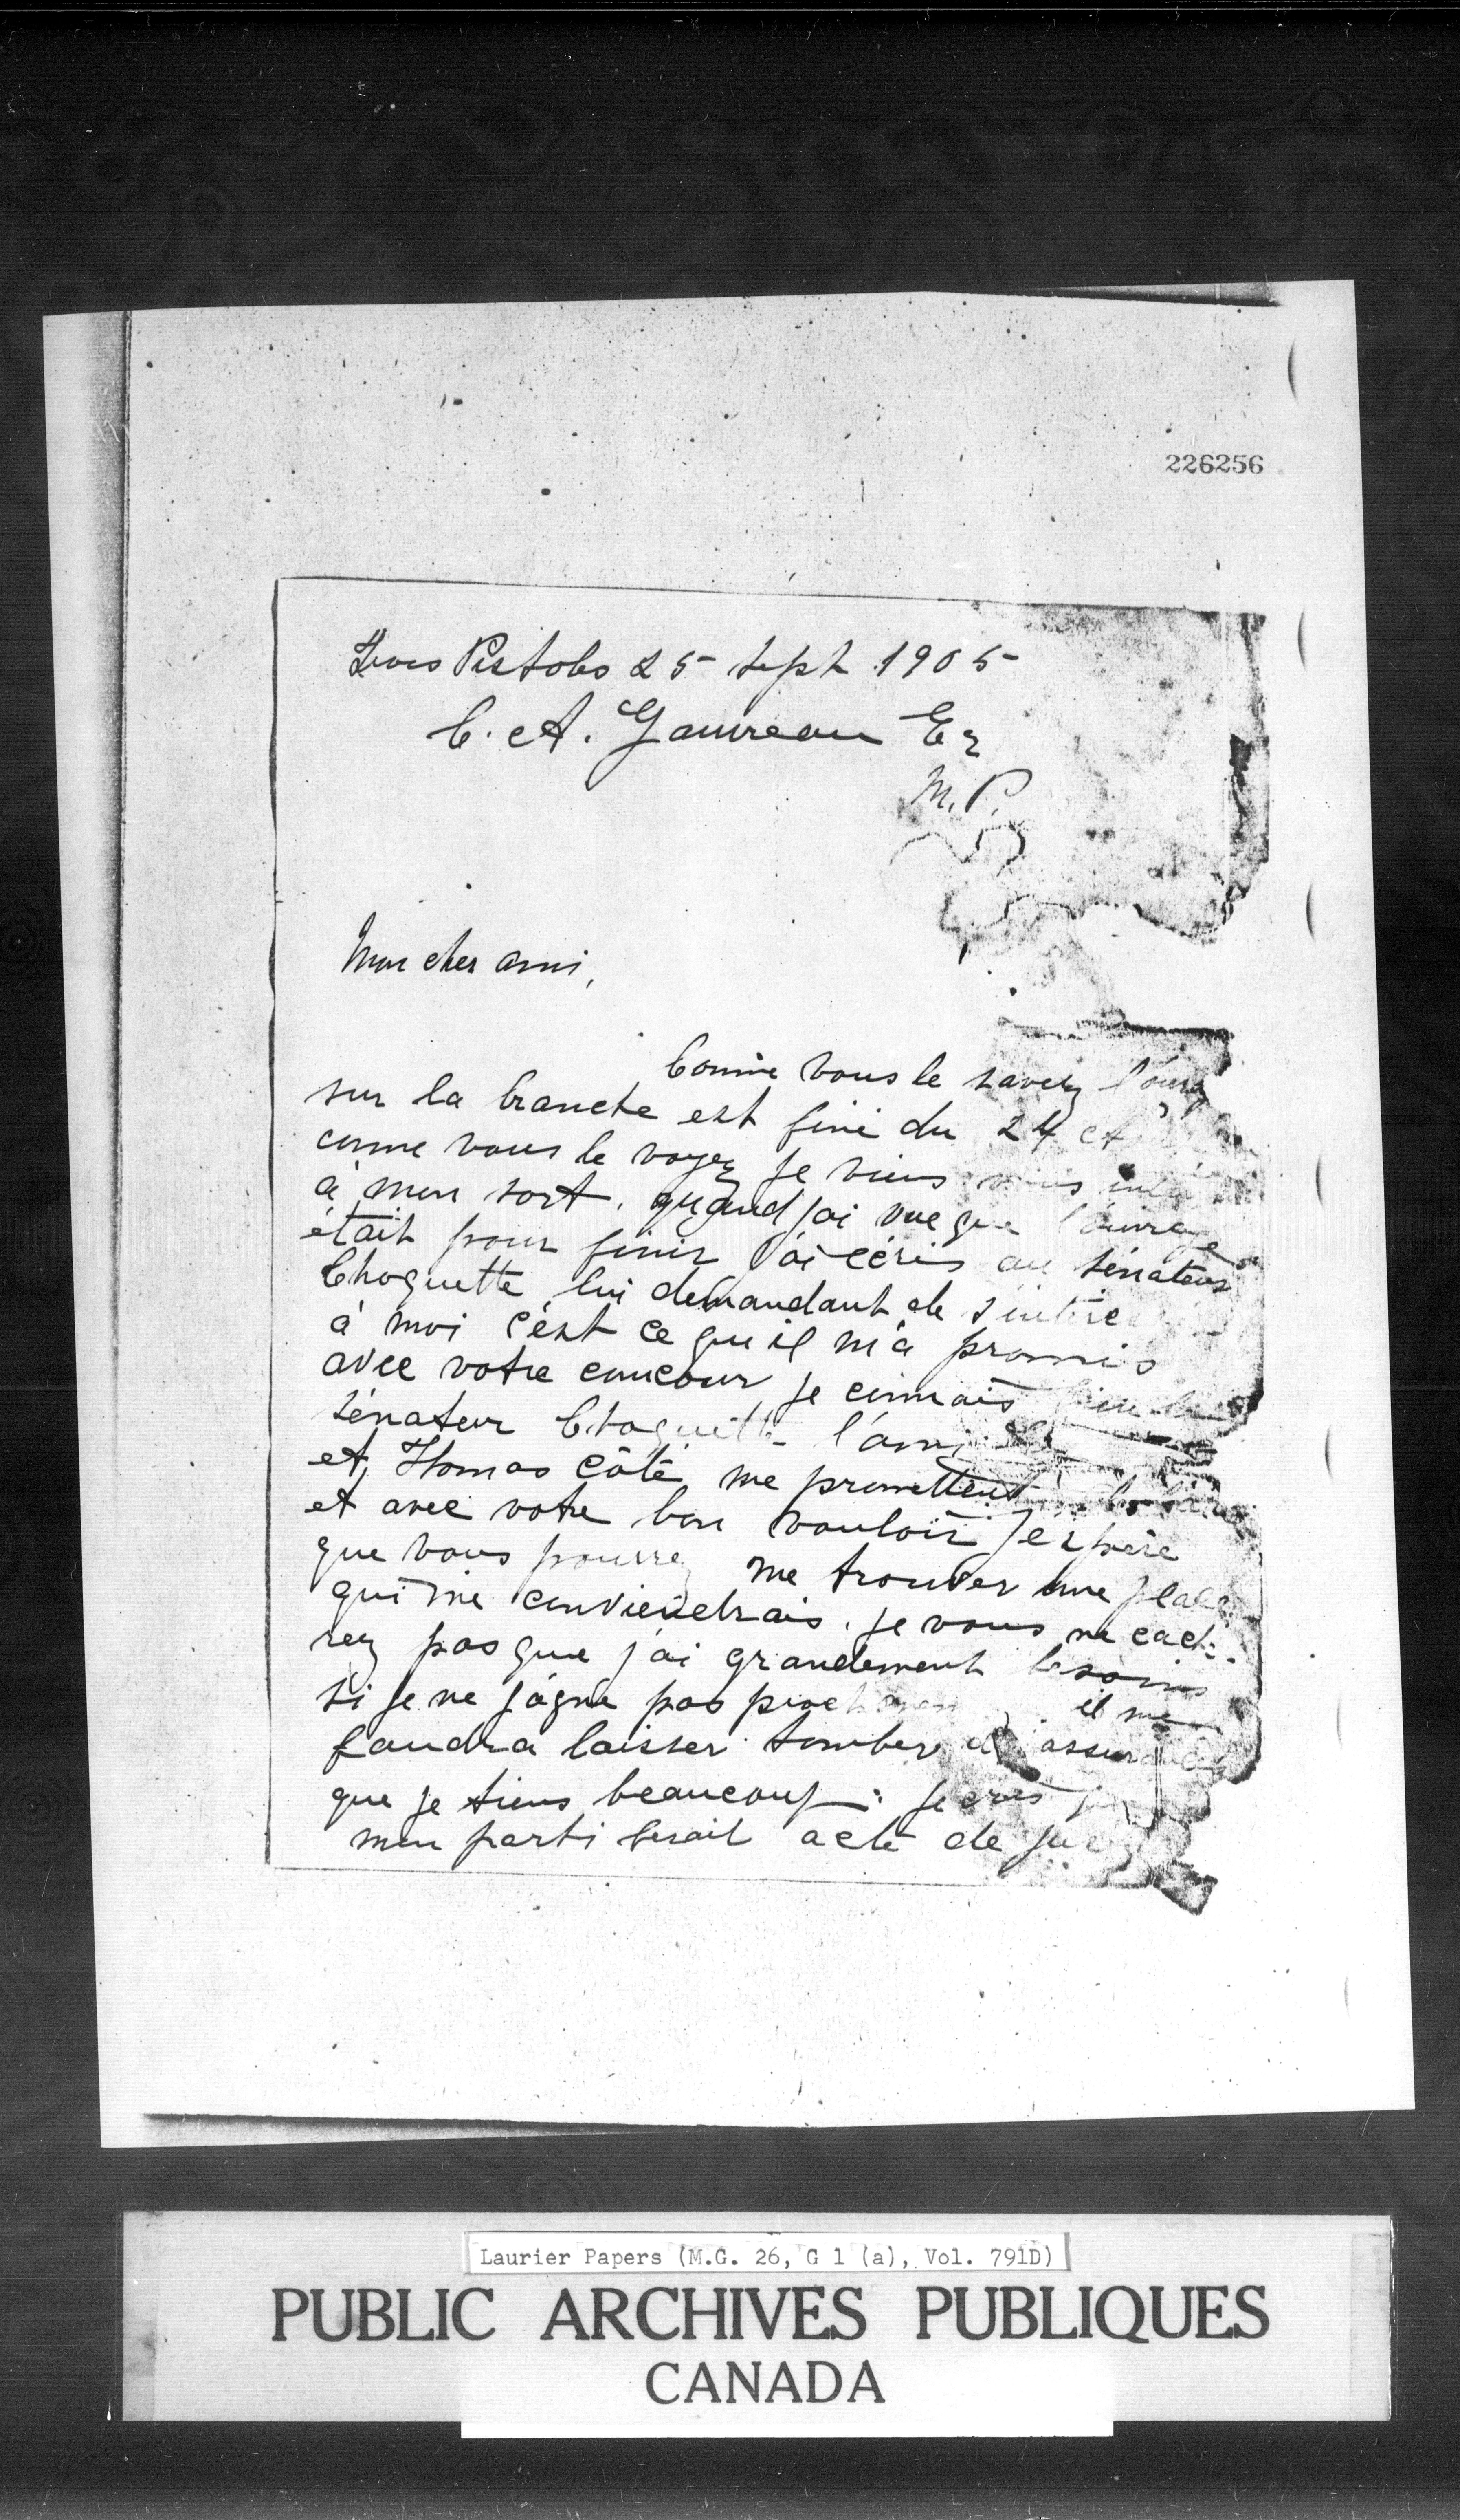 226256
Trois Pistoles 25 sept 1905
C. A. Gauvreau Er
M.P.
Mon cher ami,
Comme vous le savez
sur la branche est fini du 24 et
comme vous le voyez je viens
à mon sort. quand jai vue que l'ouvrage
était pour finir j'ai écris au sénateur
Choquette lui demandant de s'intére
à moi c'est ce qu il m'a promis
avec votre concour je connais
sénateur Choquette l'ami
et Thomas Côté me promettent
et avec votre bon vouloir j'espère
que vous pourrez me trouver une place
qui me conviendrais. je vous ne cach
rez pas que j'ai grandement besoins
si je ne gagne pas il me
faudra laisser tomber assurance
que je tiens beaucoup. je crois
mon parti ferait acte de
Laurier Papers (M.G. 26, G 1 (a), Vol. 791D)
PUBLIC ARCHIVES PUBLIQUES
CANADA